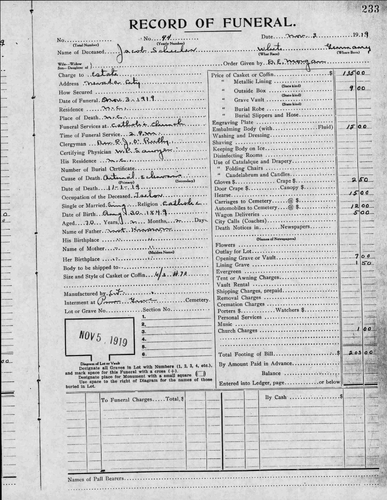 233
RECORD OF FUNERAL.
No. No. 94 Date Nov. 3 1919
(Total Number) (Yearly Number)
Name of Deceased Jacob White Germany
(What Race) (Where Born)
Charge to Estate Order Given by
Address Nevada City
How Secured
Date of Funeral Nov 3, 1919
Place of Death N.C.
Funeral Services at Catholic Church
Time of Funeral Service 2 P.M.
Clergyman
Certifying Physician
His Residence N.C.
Number of Burial Certificate
Cause of Death
Date of Death 11-1-19
Occupation of the Deceased
Single or Married Sing Religion Catholic
Date of Birth Aug 30 1849
Aged 70 Years Months Days
Name of Father not Known
His Birthplace
Name of Mother
(Maiden Name)
Her Birthplace
Body to be shipped to
Size and Style of Casket or Coffin
Manufactured by
Interment at Cemetery.
Lot No. Section No.
NOV 5, 1919
Diagram of Lot or Vault
Designate all Graves in Lot with Numbers (1, 2, 3, 4, etc.,
and mark space for this Funeral with a cross (+).
Designate place for Monument with a small square
Use space to right of Diagram for the names of those
buried in Lot.
Price of Casket or Coffin $ 135 00
Metallic Lining
Outside Box 9 00
Grave Vault
Burial Robe
Burial Slippers and Hose
Engraving Plate
Embalming Body (with Fluid) 15 00
Washing and Dressing
Shaving
Keeping Body on Ice
Disinfecting Rooms
Use of Catafalque and Drapery
" Folding Chairs
" Candelabrum and Candles
Gloves $ Crape $ 2 50
Door Crape $ Canopy $
Hearse 15 00
Carriages to Cemetery @ $
Automobiles to Cemetery @ $ 12 00
Wagon Deliveries 5 00
City Calls (Coaches)
Death Notices in Newspapers
(Names of Newspapers)
Flowers
Outlay for Lot
Opening Grave or Vault 7 00
Lining Grave 1 50
Evergreen
Tent or Awning Charges
Vault Rental
Shipping Charges, prepaid
Removal Charges
Cremation Charges
Porters $ Watchers $
Personal Services
Music
Church Charges 1 00
Total Footing of Bill $ 203 00
By Amount Paid in Advance
Balance
Entered into Ledger, page or below.
To Funeral Charges, $ By Cash $
Names of Pall Bearers